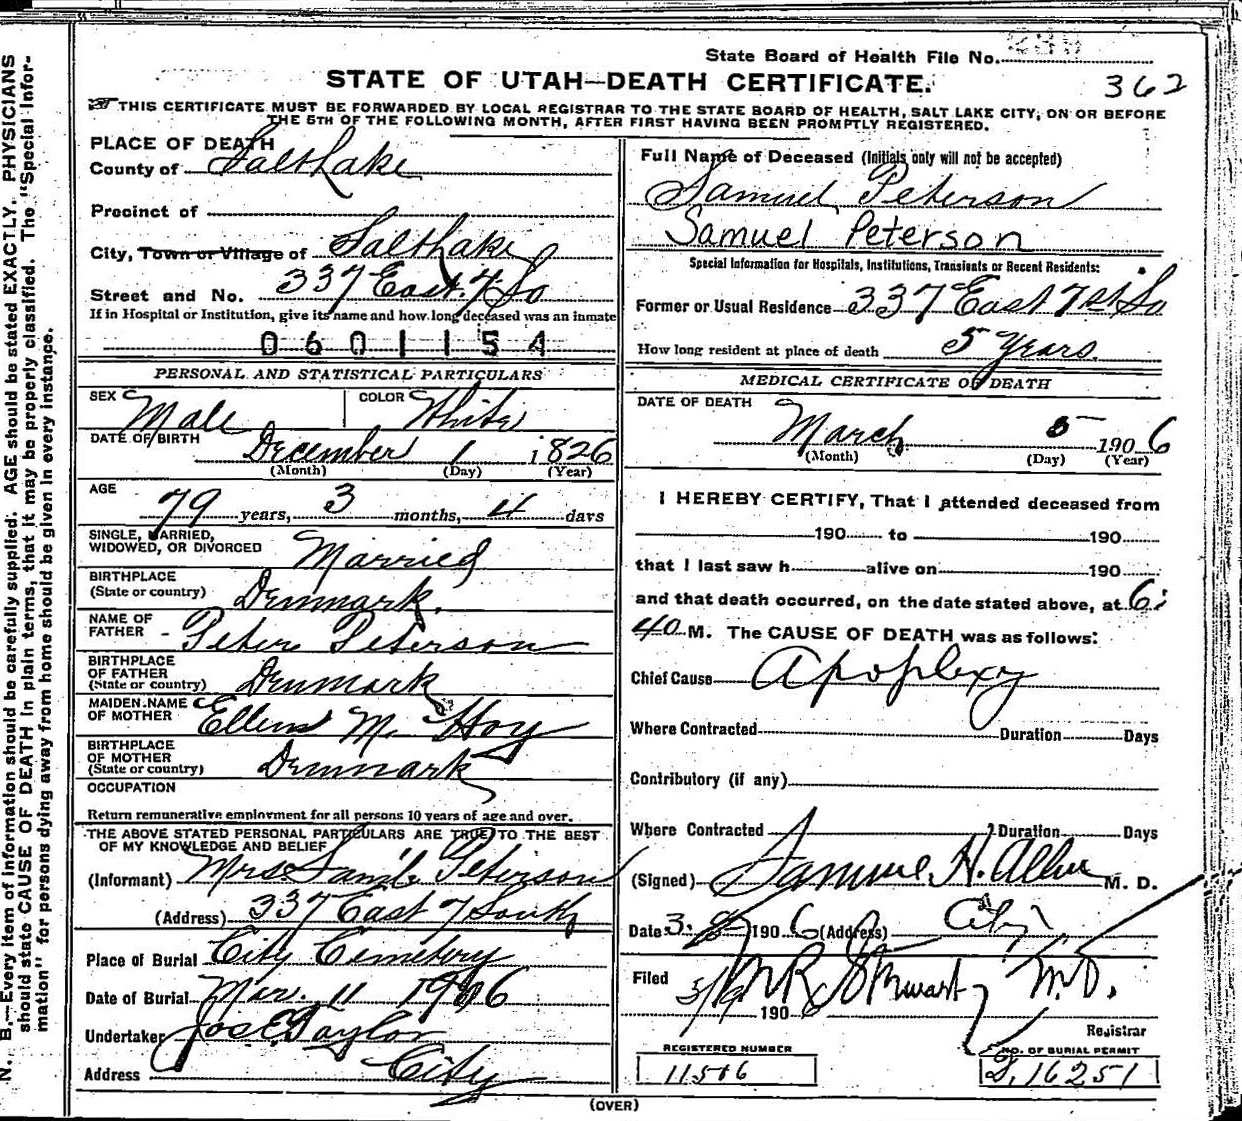 State Board of Health File No.
STATE OF UTAH—DEATH CERTIFICATE.
362
THIS CERTIFICATE MUST BE FORWARDED BY LOCAL REGISTRAR TO THE STATE BOARD OF HEALTH, SALT LAKE CITY, ON OR BEFORE
THE 5TH OF THE FOLLOWING MONTH, AFTER FIRST HAVING BEEN PROMPTLY REGISTERED.
PLACE OF DEATH
County of Salt Lake
Precinct of
City, Town or Village of Salt Lake
Street and No. 337 East 7 So
If in Hospital or Institution, give its name and how long deceased was an inmate
0601154
PERSONAL AND STATISTICAL PARTICULARS
SEX Male COLOR White
DATE OF BIRTH December 1 1826
(Month) (Day) (Year)
AGE
79 years, 3 months, 4 days
SINGLE, MARRIED,
WIDOWED, OR DIVORCED Married
BIRTHPLACE
(State or country) Denmark.
NAME OF
FATHER - Peter Peterson
BIRTHPLACE
OF FATHER
(State or country) Denmark
MAIDEN NAME
OF MOTHER Ellen M. Hoy
BIRTHPLACE
OF MOTHER
(State or country) Denmark
OCCUPATION
Return remunerative employment for all persons 10 years of age and over.
THE ABOVE STATED PERSONAL PARTICULARS ARE TRUE TO THE BEST
OF MY KNOWLEDGE AND BELIEF
(Informant) Mrs Saml. Peterson
(Address) 337 East 7 South
Place of Burial City Cemetery
Date of Burial Mar. 11 1906
Undertaker Jos E Taylor
Address City
Full Name of Deceased (Initials only will not be accepted)
Samuel Peterson
Samuel Peterson
Special Information for Hospitals, Institutions, Transients or Recent Residents:
Former or Usual Residence 337 East 7st So
How long resident at place of death 5 years.
MEDICAL CERTIFICATE OF DEATH
DATE OF DEATH
March 5 1906
(Month) (Day) (Year)
I HEREBY CERTIFY, That I attended deceased from
190 to 190
that I last saw h alive on 190
and that death occurred, on the date stated above, at 6:
40 M. The CAUSE OF DEATH was as follows:
Chief Cause Apoplexy
Where Contracted Duration Days
Contributory (if any)
Where Contracted Duration Days
(Signed) Samuel H. Allen M. D.
Date 3. 1906 (Address) City
Filed 3/9 1906 Stewart M.D.
Registrar
REGISTERED NUMBER
NO. OF BURIAL PERMIT
D. 16251
(OVER)
N. B.—Every item of information should be carefully supplied. AGE should be stated EXACTLY. PHYSICIANS
should state CAUSE OF DEATH in plain terms, that it may be properly classified. The "Special Infor-
mation" for persons dying away from home should be given in every instance.